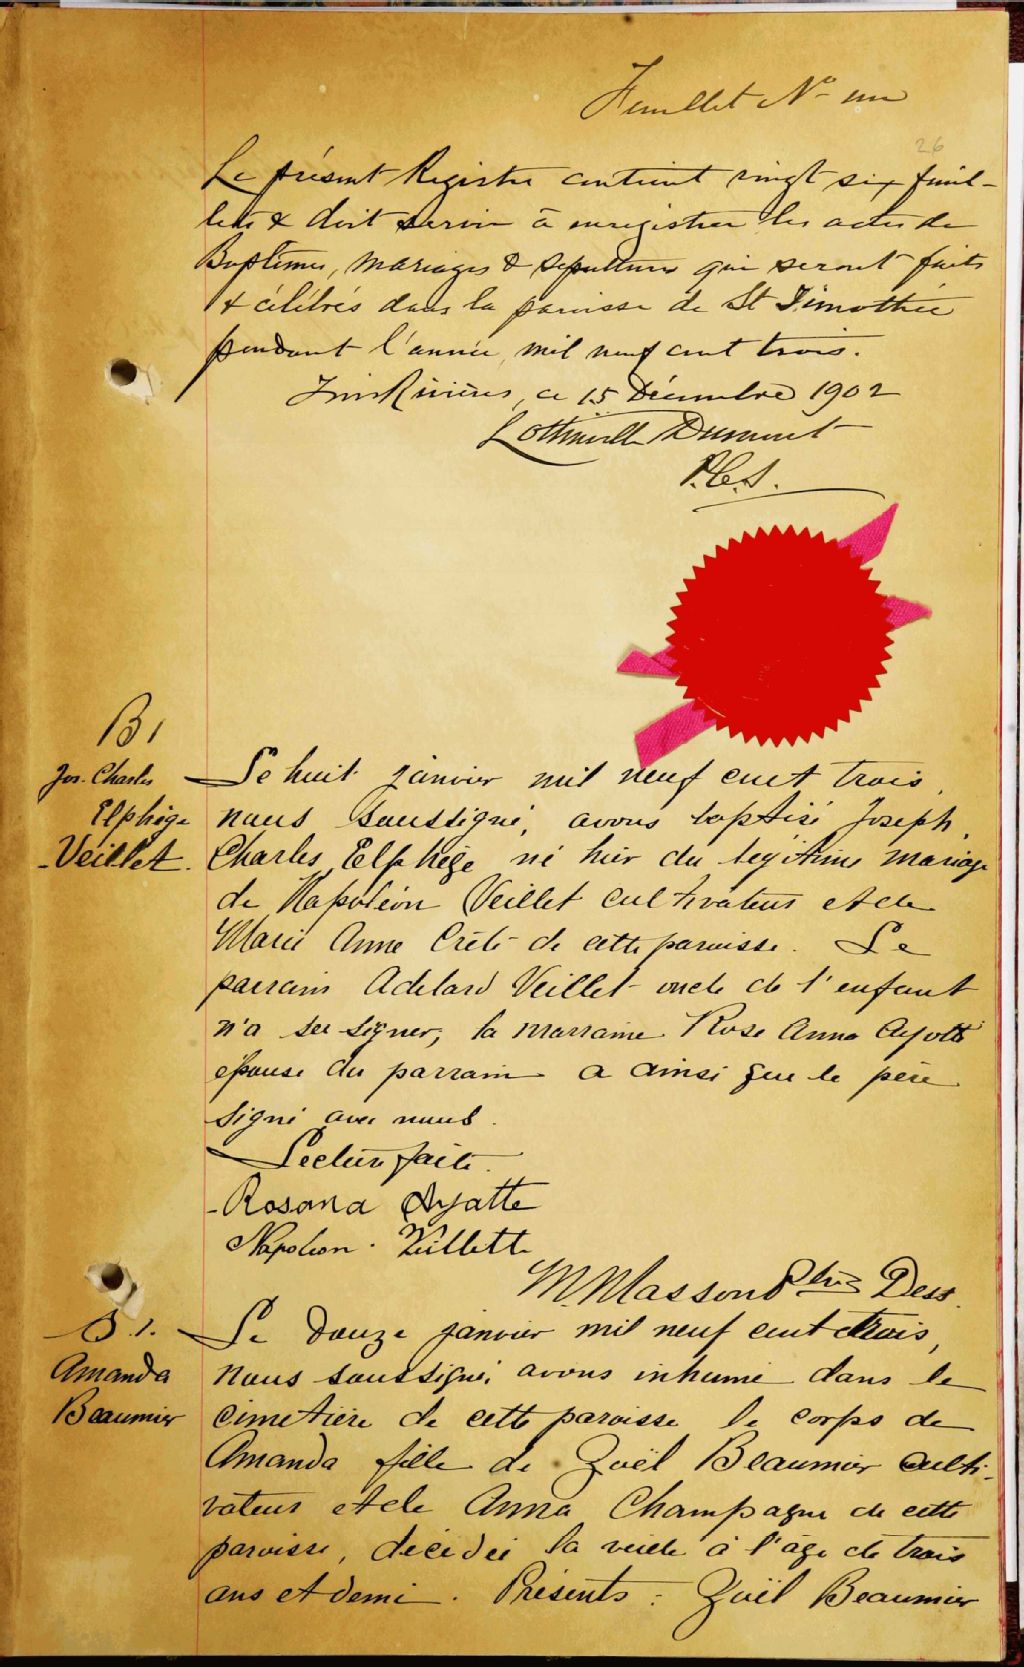 Feuillet No un
26
Le présent Registre contient vingt six feuil-
lets & doit servir à enregistrer les actes de
Baptêmes, mariages & sépultures qui seront faits
& célébrés dans la paroisse de St Timothée
pendant l'année mil neuf cent trois.
Trois Rivières, ce 15 Décembre 1902
Lottinville Dumont
P.C.S.
B 1
Jos. Charles
Elphége
Veillet.
Le huit janvier mil neuf cent trois,
nous soussigné, avons baptisé Joseph,
Charles, Elphége né hier du légitime mariage
de Napoléon Veillet cultivateur et de
Marie Anne Crête de cette paroisse. Le
parrain Adelard Veillet oncle de l'enfant
n'a su signer, la marraine Rose Anna Ayotte
épouse du parrain a ainsi que le père
signé avec nous.
Lecture faite.
Rosana Ayatte
Napoleon Veillette
M. Masson Ptre Dess.
S. 1.
Amanda
Beaumier
Le douze janvier mil neuf cent trois,
nous soussigné avons inhumé dans le
cimetière de cette paroisse le corps de
Amanda fille de Zoël Beaumier culti-
vateur et de Anna Champagne de cette
paroisse, décédée la veille à l'âge de trois
ans et demi. Présents : Zoël Beaumier